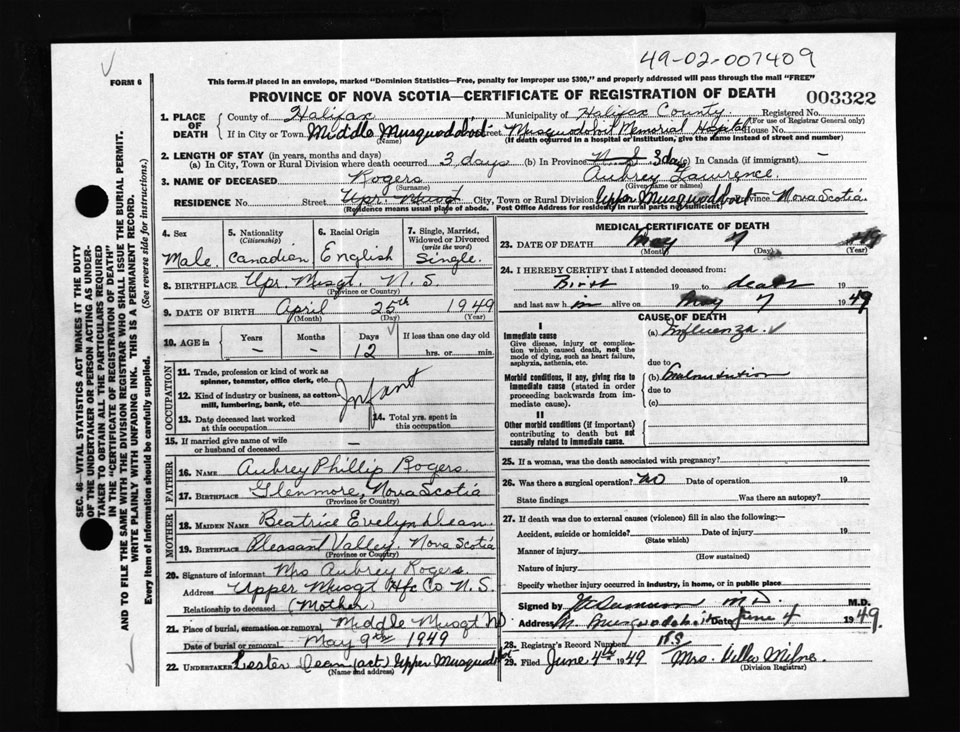 49-02-007409
FORM 6
This form if placed in an envelope, marked "Dominion Statistics—Free, penalty for improper use $300," and properly addressed will pass through the mail "FREE"
PROVINCE OF NOVA SCOTIA—CERTIFICATE OF REGISTRATION OF DEATH
003322
1. PLACE OF DEATH
County of Halifax Municipality of Halifax County Registered No.
(For use of Registrar General only)
If in City or Town Middle Musquodoboit Street Musquodoboit Memorial Hospital House No.
(Name) (If death occurred in a hospital or institution, give the name instead of street and number)
2. LENGTH OF STAY (in years, months and days)
(a) In City, Town or Rural Division where death occurred 3 days (b) In Province N.S. 3 days (c) In Canada (if immigrant) —
3. NAME OF DECEASED Rogers Aubrey Lawrence
(Surname) (Given name or names)
RESIDENCE No. Street Upr. Musqt City, Town or Rural Division Upper Musquodoboit Province Nova Scotia
(Residence means usual place of abode. Post Office Address for residents in rural parts not sufficient)
4. Sex Male
5. Nationality (Citizenship) Canadian
6. Racial Origin English
7. Single, Married, Widowed or Divorced (write the word) Single.
8. BIRTHPLACE Upr. Musqt. N. S.
(Province or Country)
9. DATE OF BIRTH April 25th 1949
(Month) (Day) (Year)
10. AGE in Years Months Days If less than one day old
— — 12 hrs. or min.
OCCUPATION
11. Trade, profession or kind of work as spinner, teamster, office clerk, etc.
12. Kind of industry or business, as cotton-mill, lumbering, bank, etc.
Infant
13. Date deceased last worked at this occupation
14. Total yrs. spent in this occupation
15. If married give name of wife or husband of deceased —
FATHER
16. NAME Aubrey Phillip Rogers.
17. BIRTHPLACE Glenmore, Nova Scotia
(Province or Country)
MOTHER
18. MAIDEN NAME Beatrice Evelyn Dean.
19. BIRTHPLACE Pleasant Valley, Nova Scotia
(Province or Country)
20. Signature of informant Mrs Aubrey Rogers.
Address Upper Musqt Hfx Co N. S.
Relationship to deceased (Mother)
21. Place of burial, cremation or removal Middle Musqt
Date of burial or removal May 9th 1949
22. UNDERTAKER Lester Dean (act) Upper Musquodoboit
(Name and address)
MEDICAL CERTIFICATE OF DEATH
23. DATE OF DEATH May 7 1949
(Month) (Day) (Year)
24. I HEREBY CERTIFY that I attended deceased from:
Birth 19 to death 19
and last saw h im alive on May 7 1949
CAUSE OF DEATH
I
Immediate cause
Give disease, injury or complication which caused death, not the mode of dying, such as heart failure, asphyxia, asthenia, etc.
(a) Influenza
due to
Morbid conditions, if any, giving rise to immediate cause (stated in order proceeding backwards from immediate cause).
(b) Malnutrition
due to
(c)
II
Other morbid conditions (if important) contributing to death but not causally related to immediate cause.
25. If a woman, was the death associated with pregnancy?
26. Was there a surgical operation? no Date of operation 19
State findings Was there an autopsy?
27. If death was due to external causes (violence) fill in also the following:—
Accident, suicide or homicide? Date of injury 19
(State which)
Manner of injury
(How sustained)
Nature of injury
Specify whether injury occurred in industry, in home, or in public place
Signed by M D M.D.
Address M. Musquodoboit Date June 4 1949.
N.S
28. Registrar's Record Number
29. Filed June 4th 1949 Mrs. Milner
SEC. 46—VITAL STATISTICS ACT MAKES IT THE DUTY
OF THE UNDERTAKER OR PERSON ACTING AS UNDER-
TAKER TO OBTAIN ALL THE PARTICULARS REQUIRED
IN THE "CERTIFICATE OF REGISTRATION OF DEATH"
AND TO FILE THE SAME WITH THE DIVISION REGISTRAR WHO SHALL ISSUE THE BURIAL PERMIT.
WRITE PLAINLY WITH UNFADING INK. THIS IS A PERMANENT RECORD.
Every item of Information should be carefully supplied. (See reverse side for instructions.)